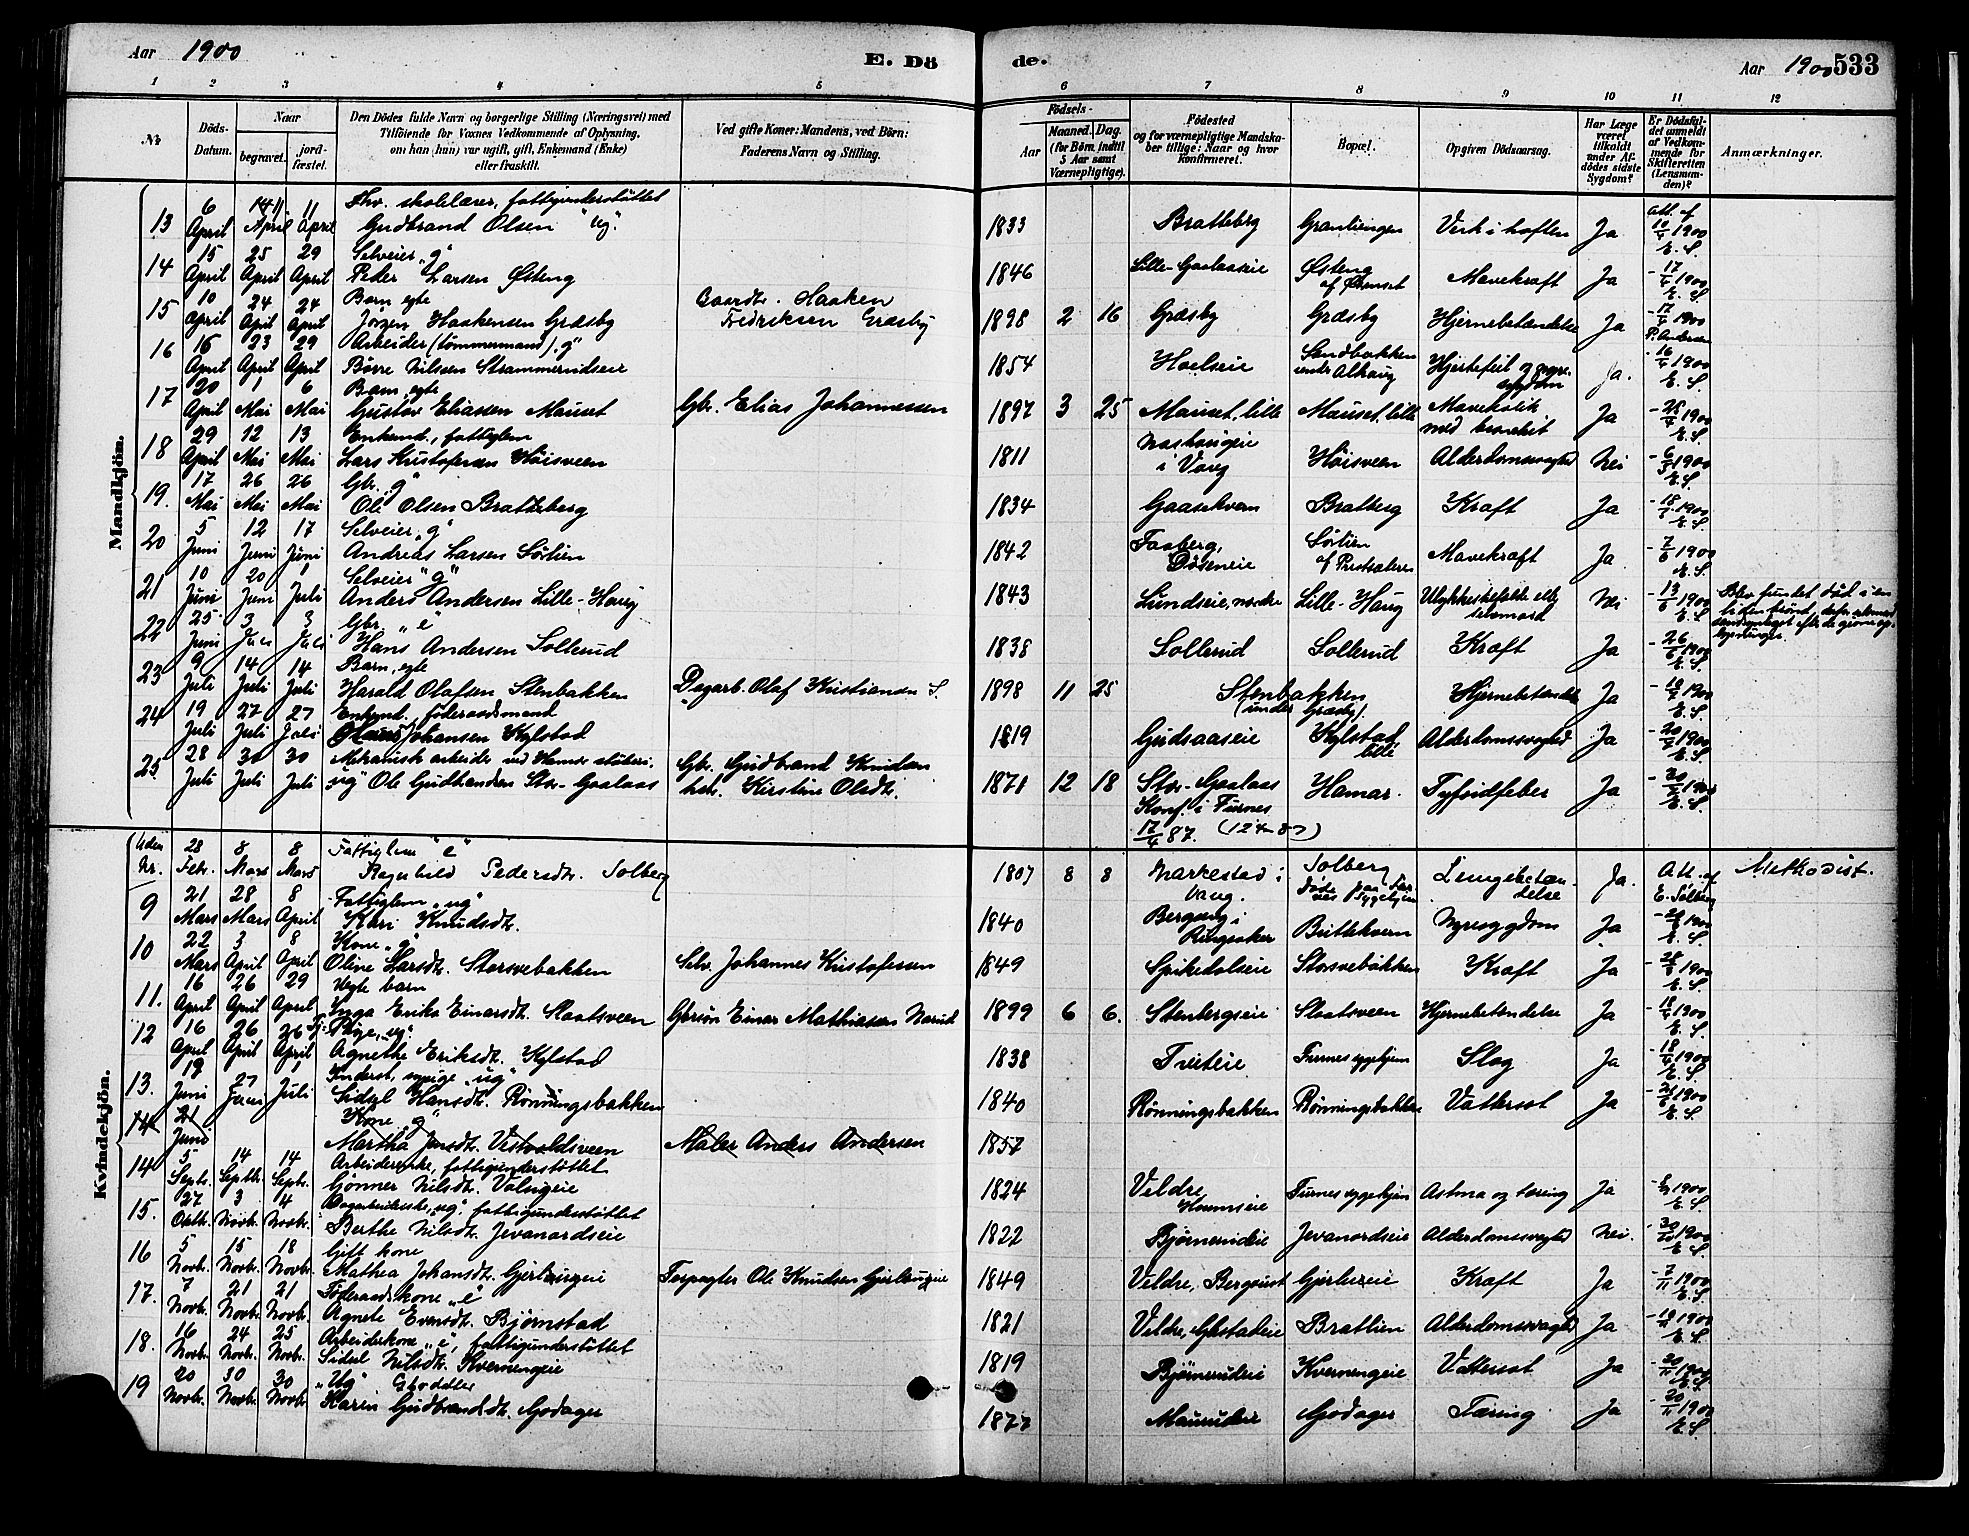 Aar 1900
E. Dö
de.
Aar 1900 533
1 2 3 4 5 6 7 8 9 10 11 12
№
Döds-Datum.
Naar
begravet.
jordfæstet.
Den Dödes fulde Navn og borgerlige Stilling (Næringsvei) med
Tilföiende for Voxnes Vedkommende af Oplysning,
om han (hun) var ugift, gift, Enkemand (Enke)
eller fraskilt.
Ved gifte Koner: Mandens, ved Börn:
Faderens Navn og Stilling.
Födsels-
Aar
Maaned. Dag.
(for Börn indtil
5 Aar samt
Værnepligtige).
Födested
og for værnepligtige Mandska-
ber tillige: Naar og hvor
Konfirmeret.
Bopæl.
Opgiven Dödsaarsag.
Har Læge
været
tilkaldt
under Af-
dödes sidste
Sygdom?
Er Dödsfal-
det anmeldt
af Vedkom-
mende for
Skifteretten
(Lensman-
den)?
Anmærkninger.
Mandkjön.
13 6 April 11 April 11 April Fhv. skolelærer, fattigunderstøttet
Gudbrand Olsen "ug." 1833 Bratteberg Granliengen Verk i hoften Ja att. af 10/4 1900 E. S.
14 15 April 25 April 29 April Selveier "g"
Peder Larsen Østeng 1846 Lille-Gaalaaseie Østeng Mavekræft Ja - 17/4 1900 E. S.
15 10 April 24 April 24 April Barn, egte
Jörgen Haakensen Græsby Gaardbr. Haaken
Fredriksen Græsby 1898 2 16 Græsby Græsby Hjernebetændelse Ja - 17/4 1900 P. Andersen
16 15 April 23 April 29 April Arbeider (tömmermand) "g"
Börre Nilsen Strammerudseie 1854 Hoelseie Sandbakken
under Alhaug Hjertefeil Ja. - 16/4 1900 E. S.
17 20 April 1 Mai 6 Mai Barn, egte
Gustav Eliassen Mauset Gbr. Elias Johannessen 1897 3 25 Mauset, lille Mauset, lille Mavekolik
med bronchit Ja - 25/4 1900 E. S.
18 29 April 12 Mai 13 Mai Enkemd., fattiglem
Lars Kristofersen Höisveen 1811 i Vang Höisveen Alderdomssvaghed Nei - 6/5 1900 E. S.
19. 17 Mai 26 Mai 26 Mai Gbr. "g"
Ole Olsen Bratteberg 1834 Gaasekvern Bratberg Kræft Ja - 18/5 1900 E. S.
20 5 Juni 12 Juni 17 Juni Selveier "g"
Andreas Larsen Sörlien 1842 Faaberg,
Döseneie Sörlien
af Prestsæteren Mavekræft Ja - 7/6 1900 E. S.
21 10 Juni 20 Juni 1 Juli Selveier "g"
Anders Andersen Lille-Haug 1843 Lundseie, nordre Lille-Haug Ulykkestilfælde eller
selvmord Nei - 13/6 1900 E. S. Blev fundet död i en
liden brönd
22 25 Juni 3 Juli 3 Juli Gbr. "e"
Hans Andersen Sollerud 1838 Sollerud Sollerud Kræft Ja - 26/6 1900 E. S.
23 9 Juli 14 Juli 14 Juli Barn, egte
Harald Olafsen Stenbakken Dagarb. Olaf Kristiansen S. 1898 11 25 Stenbakken
(under Græsby) Hjernebetændelse Ja - 10/7 1900 E. S.
24 19 Juli 27 Juli 27 Juli Enkemd., föderaadsmand
Johansen Kylstad 1819 Gjødsaaseie Kylstad
lille Alderdomssvaghed Ja - 20/7 1900 E. S.
25 28 Juli 30 Juli 30 Juli Mekanisk arbeider ved Hamar støberi.
"ug" Ole Gudbrandsen Stor-Gaalaas Gbr. Gudbrand Knudsen
hstr. Kirstine Olsdtr. 1871 12 18 Stor-Gaalaas
Konf. i Furnes
17/4 87. (124-87) Hamar. Tyfoidfeber Ja - 30/7 1900 E. S.
Kvindekjön.
Uden Nr. 28 Febr. 8 Mars 8 Mars Fattiglem "e"
Ragnhild Pedersdtr. Solberg 1807 8 8 Narkestad i
Vang. Solberg Lungebetæn-
delse Ja. Att. af E. Solberg Methodist.
9 21 Mars 28 Mars 8 April Fattiglem "ug"
Kari Knudsdtr. 1840 Bergseng i
Ringsaker Brittekvern Nyresygdom Ja E. S.
10 22 Mars 3 April 8 April Kone "g"
Oline Larsdtr. Storsvebakken Selv. Johannes Kristofersen 1849 Spikedalseie Storsvebakken Kræft Ja E. S.
11. 16 April 26 April 29 April Uegte barn
Inga Erika Einarsdtr. Slaatsveen Einar Mathiassen Narud 1899 6 6. Stenbergseie Slaatsveen Hjernebetændelse Ja - 18/4 1900 E. S.
12 16 April 26 April 26 April Pige, "ug."
Agnethe Eriksdtr. Kylstad 1838 Tveteie Furnes sygehjem Slag Ja - 18/4 1900 E. S.
13. 19 Juni 27 Juni 1 Juli Inderst, sypige "ug"
Sidsel Hansdtr. Rönningsbakken 1840 Rönningsbakken Rönningsbakken Vattersot Ja - 21/6 1900 E. S.
14 21 Juni Kone "g"
Martha Jensdtr. Vestvoldsveen Maler Anders Andersen 1857
14 5 Septr. 14 Septbr. 14 Septr. Arbeiderenke, fattigunderstøttet
Gönner Nilsdtr. Valseie 1824 Veldre, Furnes sygehjem Astma og tæring Ja 1900 E. S.
15. 27 Oktbr. 3 Novbr. 4 Novbr. "ug." fattigunderstøttet
Berthe Nilsdtr. Jevanordseie 1822 Bjørnerudeie Jevanordseie Alderdomssvaghed Nei. - 30/10 1900 E. S.
16 5 Novbr. 15 Novbr. 18 Novbr. Gift kone
Mathea Johansdtr. Gjerlaugeie Forpagter Ole Knudsen Gjerlaugeie 1849 Veldre, Bergviust Gjerlueie Kræft Ja - 7/11 1900 E. S.
17. 7 Novbr. 21 Novbr. 21 Novbr. Föderaadskone "e"
Agnete Evensdtr. Björnstad 1821 Veldre, Brattlien Alderdomssvaghed Ja 1900 E. S.
18. 16 Novbr. 24 Novbr. 25 Novbr. Arbeiderkone "e", fattigunderstøttet
Sidsel Nilsdtr. Kvernengeie 1819 Bjørnerudeie Kvernengeie Vattersot Ja - 20/11 1900 E. S.
19 20 Novbr. 30 Novbr. 30 Novbr. "Ug" Gbrdatter
Karen Gudbrandsdtr. Godager 1877 Maurudeie Godager Tæring Ja - 20/11 1900 E. S.